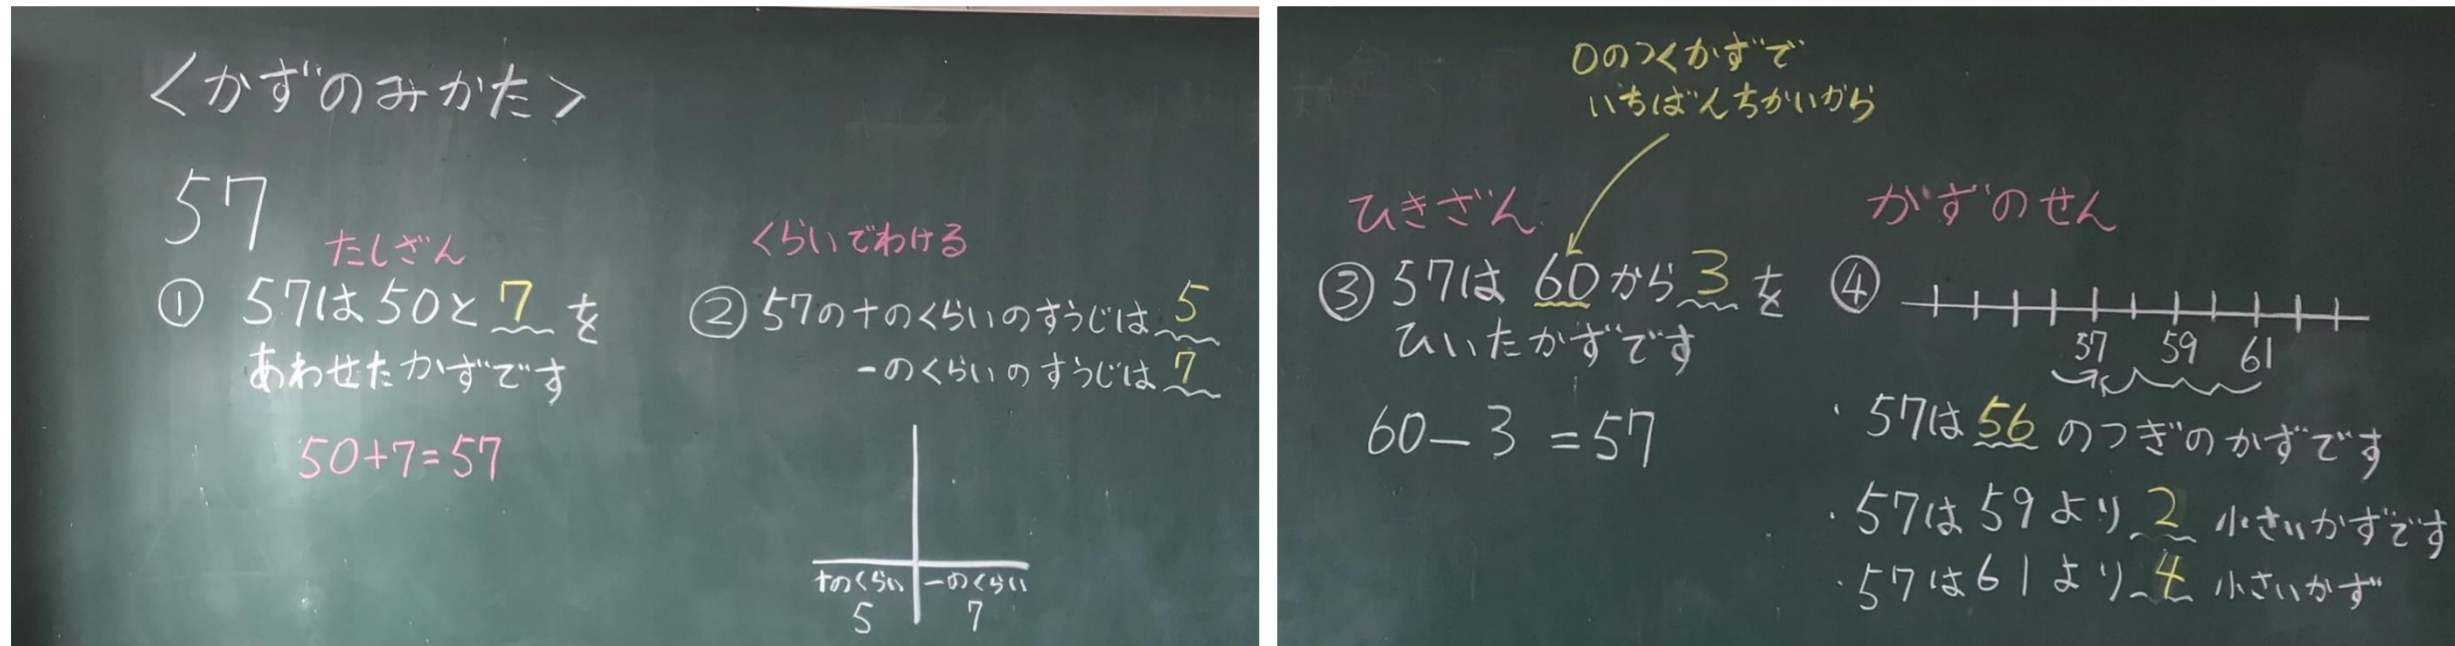 ＜かずのみかた＞
57
たしざん
① 57は50と7を
あわせたかずです
50+7=57
くらいでわける
② 57の十のくらいのすうじは5
一のくらいのすうじは7
十のくらい 一のくらい
5 7
0のつくかずで
いちばんちかいから
ひきざん
③ 57は60から3を
ひいたかずです
60-3=57
かずのせん
④
57 59 61
・57は56のつぎのかずです
・57は59より2小さいかずです
・57は61より4小さいかず